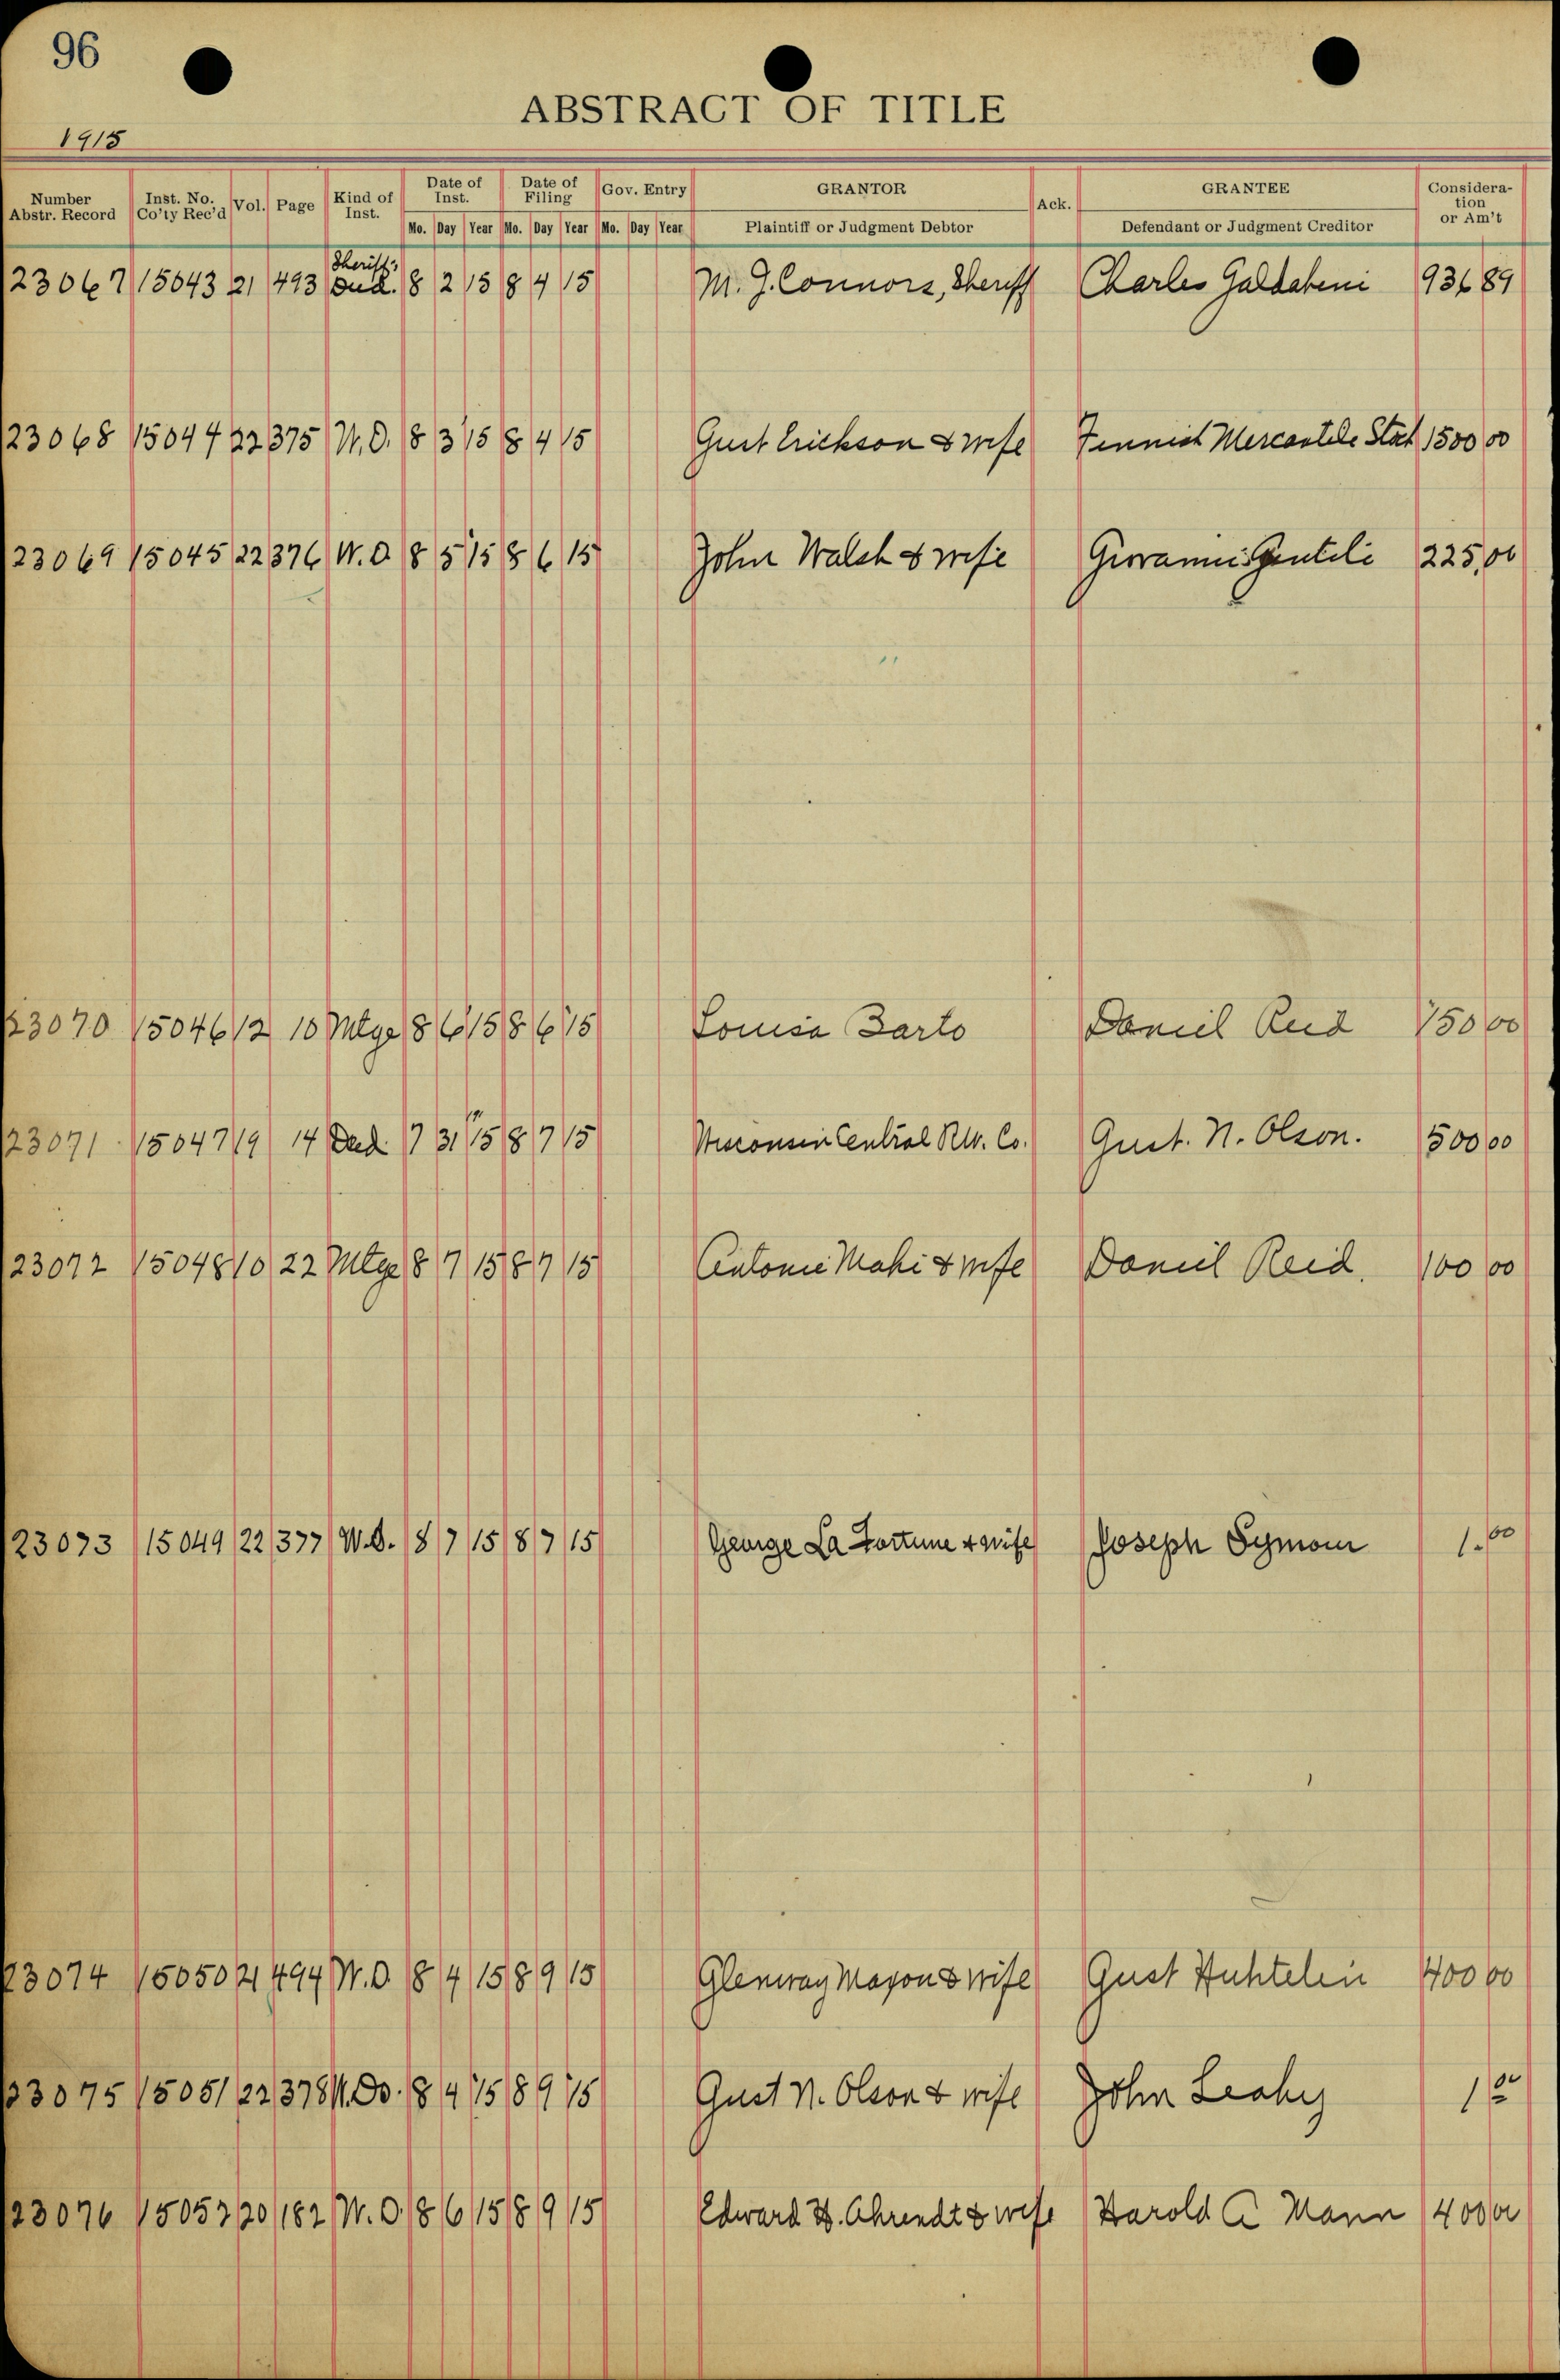 96
ABSTRACT OF TITLE
1915
Number Abstr. Record Inst. No. Co'ty Rec'd Vol. Page Kind of Inst. Date of Inst. Date of Filing Gov. Entry GRANTOR Ack. GRANTEE Consideration or Am't
Mo. Day Year Mo. Day Year Mo. Day Year Plaintiff or Judgment Debtor Defendant or Judgment Creditor
Sheriff's
23067 15043 21 493 Deed. 8 2 15 8 4 15 M. J. Connors, Sheriff Charles Galdabeni 936 89
23068 15044 22 375 W.D. 8 3 15 8 4 15 Gust Erickson & wife Finnish Mercantile 1500 00
23069 15045 22 376 W.D. 8 5 15 8 6 15 John Walsh & wife Giovanni Gentili 225 00
23070 15046 12 10 Mtge 8 6 15 8 6 15 Louisa Barto Daniel Reid 150 00
23071 15047 19 14 Deed 7 31 15 8 7 15 Wisconsin Central RW. Co. Gust. N. Olson. 500 00
23072 15048 10 22 Mtge 8 7 15 8 7 15 Antonie Mahi & wife Daniel Reid. 100 00
23073 15049 22 377 W.D. 8 7 15 8 7 15 George La Fortune & wife Joseph 1.00
23074 15050 21 494 W.D 8 4 15 8 9 15 Glenway Maxon & wife Gust Huhtelin 400 00
23075 15051 22 378 W.D. 8 4 15 8 9 15 Gust N. Olson & wife John Leahy 1 00
23076 15052 20 182 W.D. 8 6 15 8 9 15 Edward H. Ahrendt & wife Harold A Mann 400 00